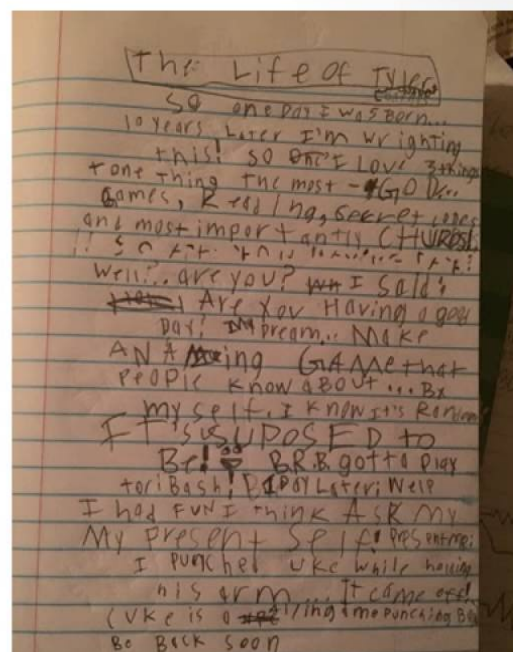 The Life of Tyler
So one Day I was Born...
10 years Later I'm wrighting
this! SO I Love 3 things
+ one thing the most - GOD...
Games, Reading, secret codes
and most important antly CHURCH!
!! So
Well?.. are you? I said:
Are You Having a good
Day! My Dream... Make
AN Amazing GAMe that
PeoPle Know aBOUT... By
my self. I Know It's Random
IT'S SUPOSED to
Be! B.R.B. gotta Play
toriBash! 1 DAY Later: Well
I had FUN I think ASK My
My Present Self! Present me:
I Punched UKe While holding
his arm... It came off!
(UKe is a Punching Bag
Be Back Soon